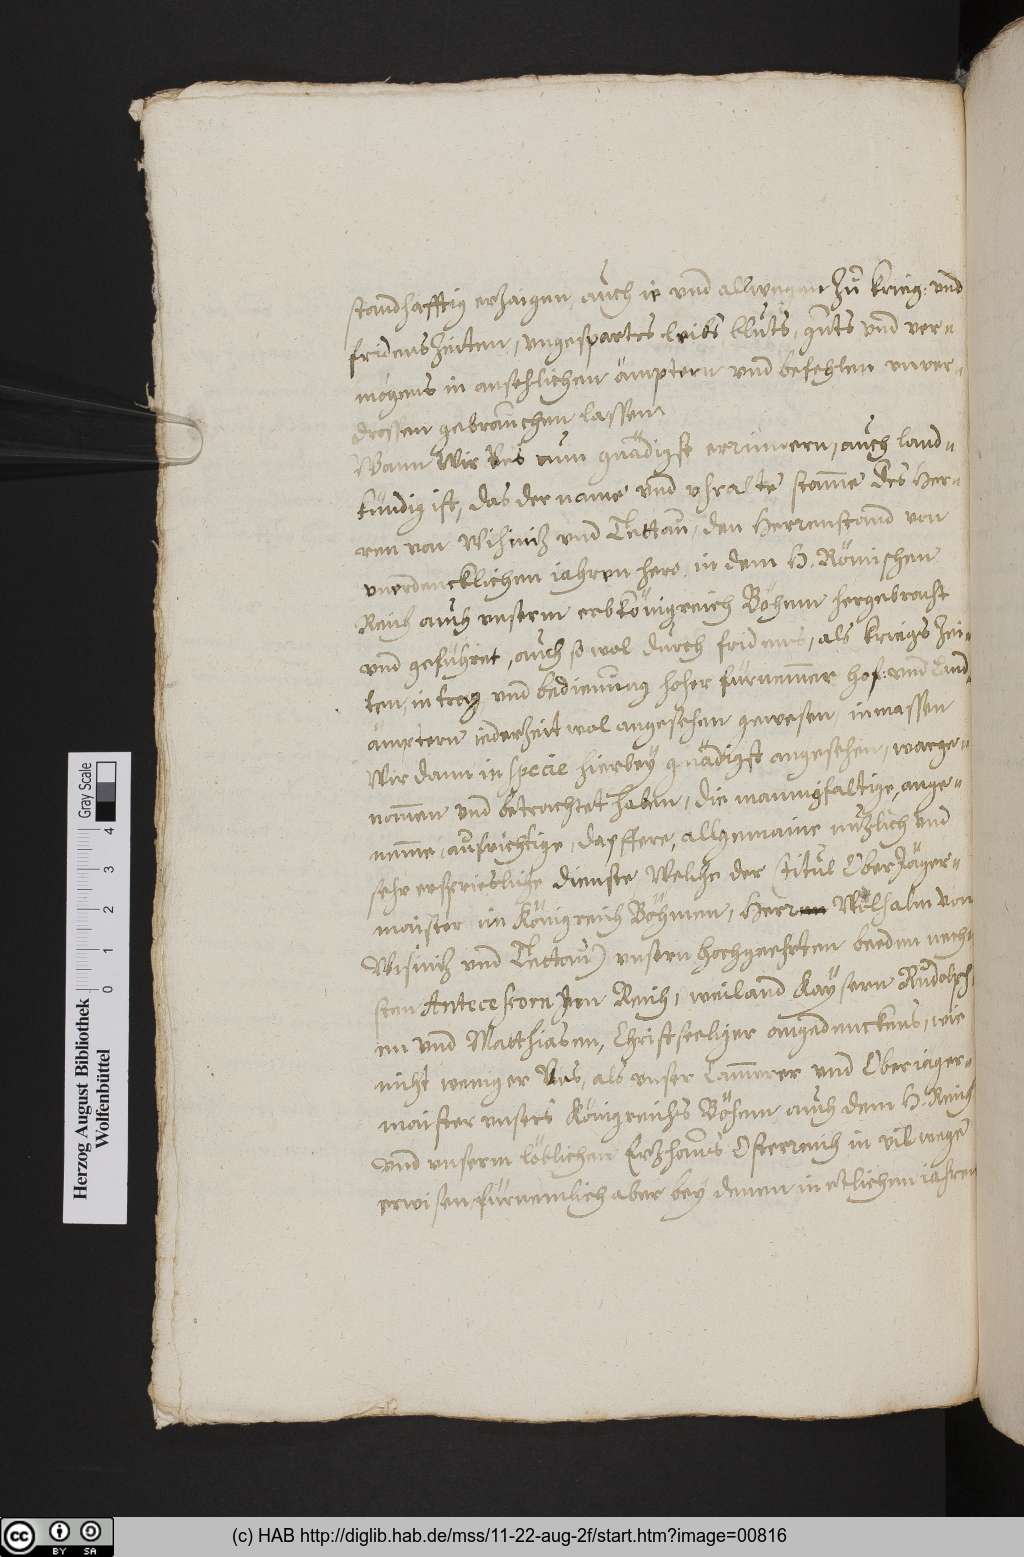 standhafftig erzaigen, auch ie vnd allwegen zu krieg: vnd
fridenszeiten, vngespartes leibs bluts, guts vnd ver-
mögens in ansehlichen ämptern vnd befehlen vnver-
drossen gebrauchen lassen.
Wann Wir Vns nun gnädigst erinnern, auch land-
kündig ist, das der name vnd vhralte stam̃e des Her-
ren von Wchiniz vnd Tettau, den Herrenstand von
vnerdencklichen iahren hero, in dem H. Römischen
Reich auch vnserm erbkönigreich Böhmen hergebracht
vnd geführet, auch so wol durch fridens, als kriegs zei-
ten, in trag vnd bedienung hoher fürnem̃er hof: vnd Land
ämptern iederzeit wol angesehen gewesen, inmassen
Wir dann in specie hierbey gnädigst angesehen, warge-
nom̃en vnd betrachtet haben, die mannigfaltige, ange-
nem̃e, aufrichtige, dapffere, allgemaine nuzlich vnd
sehr ersprieslige dienste, Welche der (titul Ober Jäger-
maister im Königreich Böhmen, Herr Wilhalm von
Wchiniz vnd Tettau) vnsern hochgeehrten beeden nech-
sten Antecessorn Im Reich, weiland Kaysern Rudolph
en vnd Matthiasen, Christseeliger angedenckens, wie
nicht weniger Vns, als vnser Cam̃erer vnd Oberiäger-
maister vnsers Königreichs Böhem, auch dem H. Reich
vnd vnserm löblichen Erzhaus Österreich in vil wege
erwisen, fürnemlich aber bey denen in etlichen iahren
Herzog August Bibliothek
Wolfenbüttel
Gray Scale
0 1 2 3 4
(c) HAB http://diglib.hab.de/mss/11-22-aug-2f/start.htm?image=00816
cc BY SA